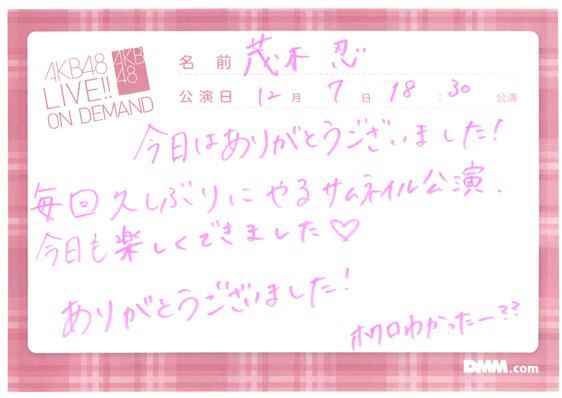 AKB48
LIVE!!
ON DEMAND
AKB
48
名前 茂木 忍
公演日 12月 7日 18:30 公演
今日はありがとうございました!
毎回久しぶりにやるサムネイル公演、
今日も楽しくできました♡
ありがとうございました!
ホクロわかったー??
DMM.com